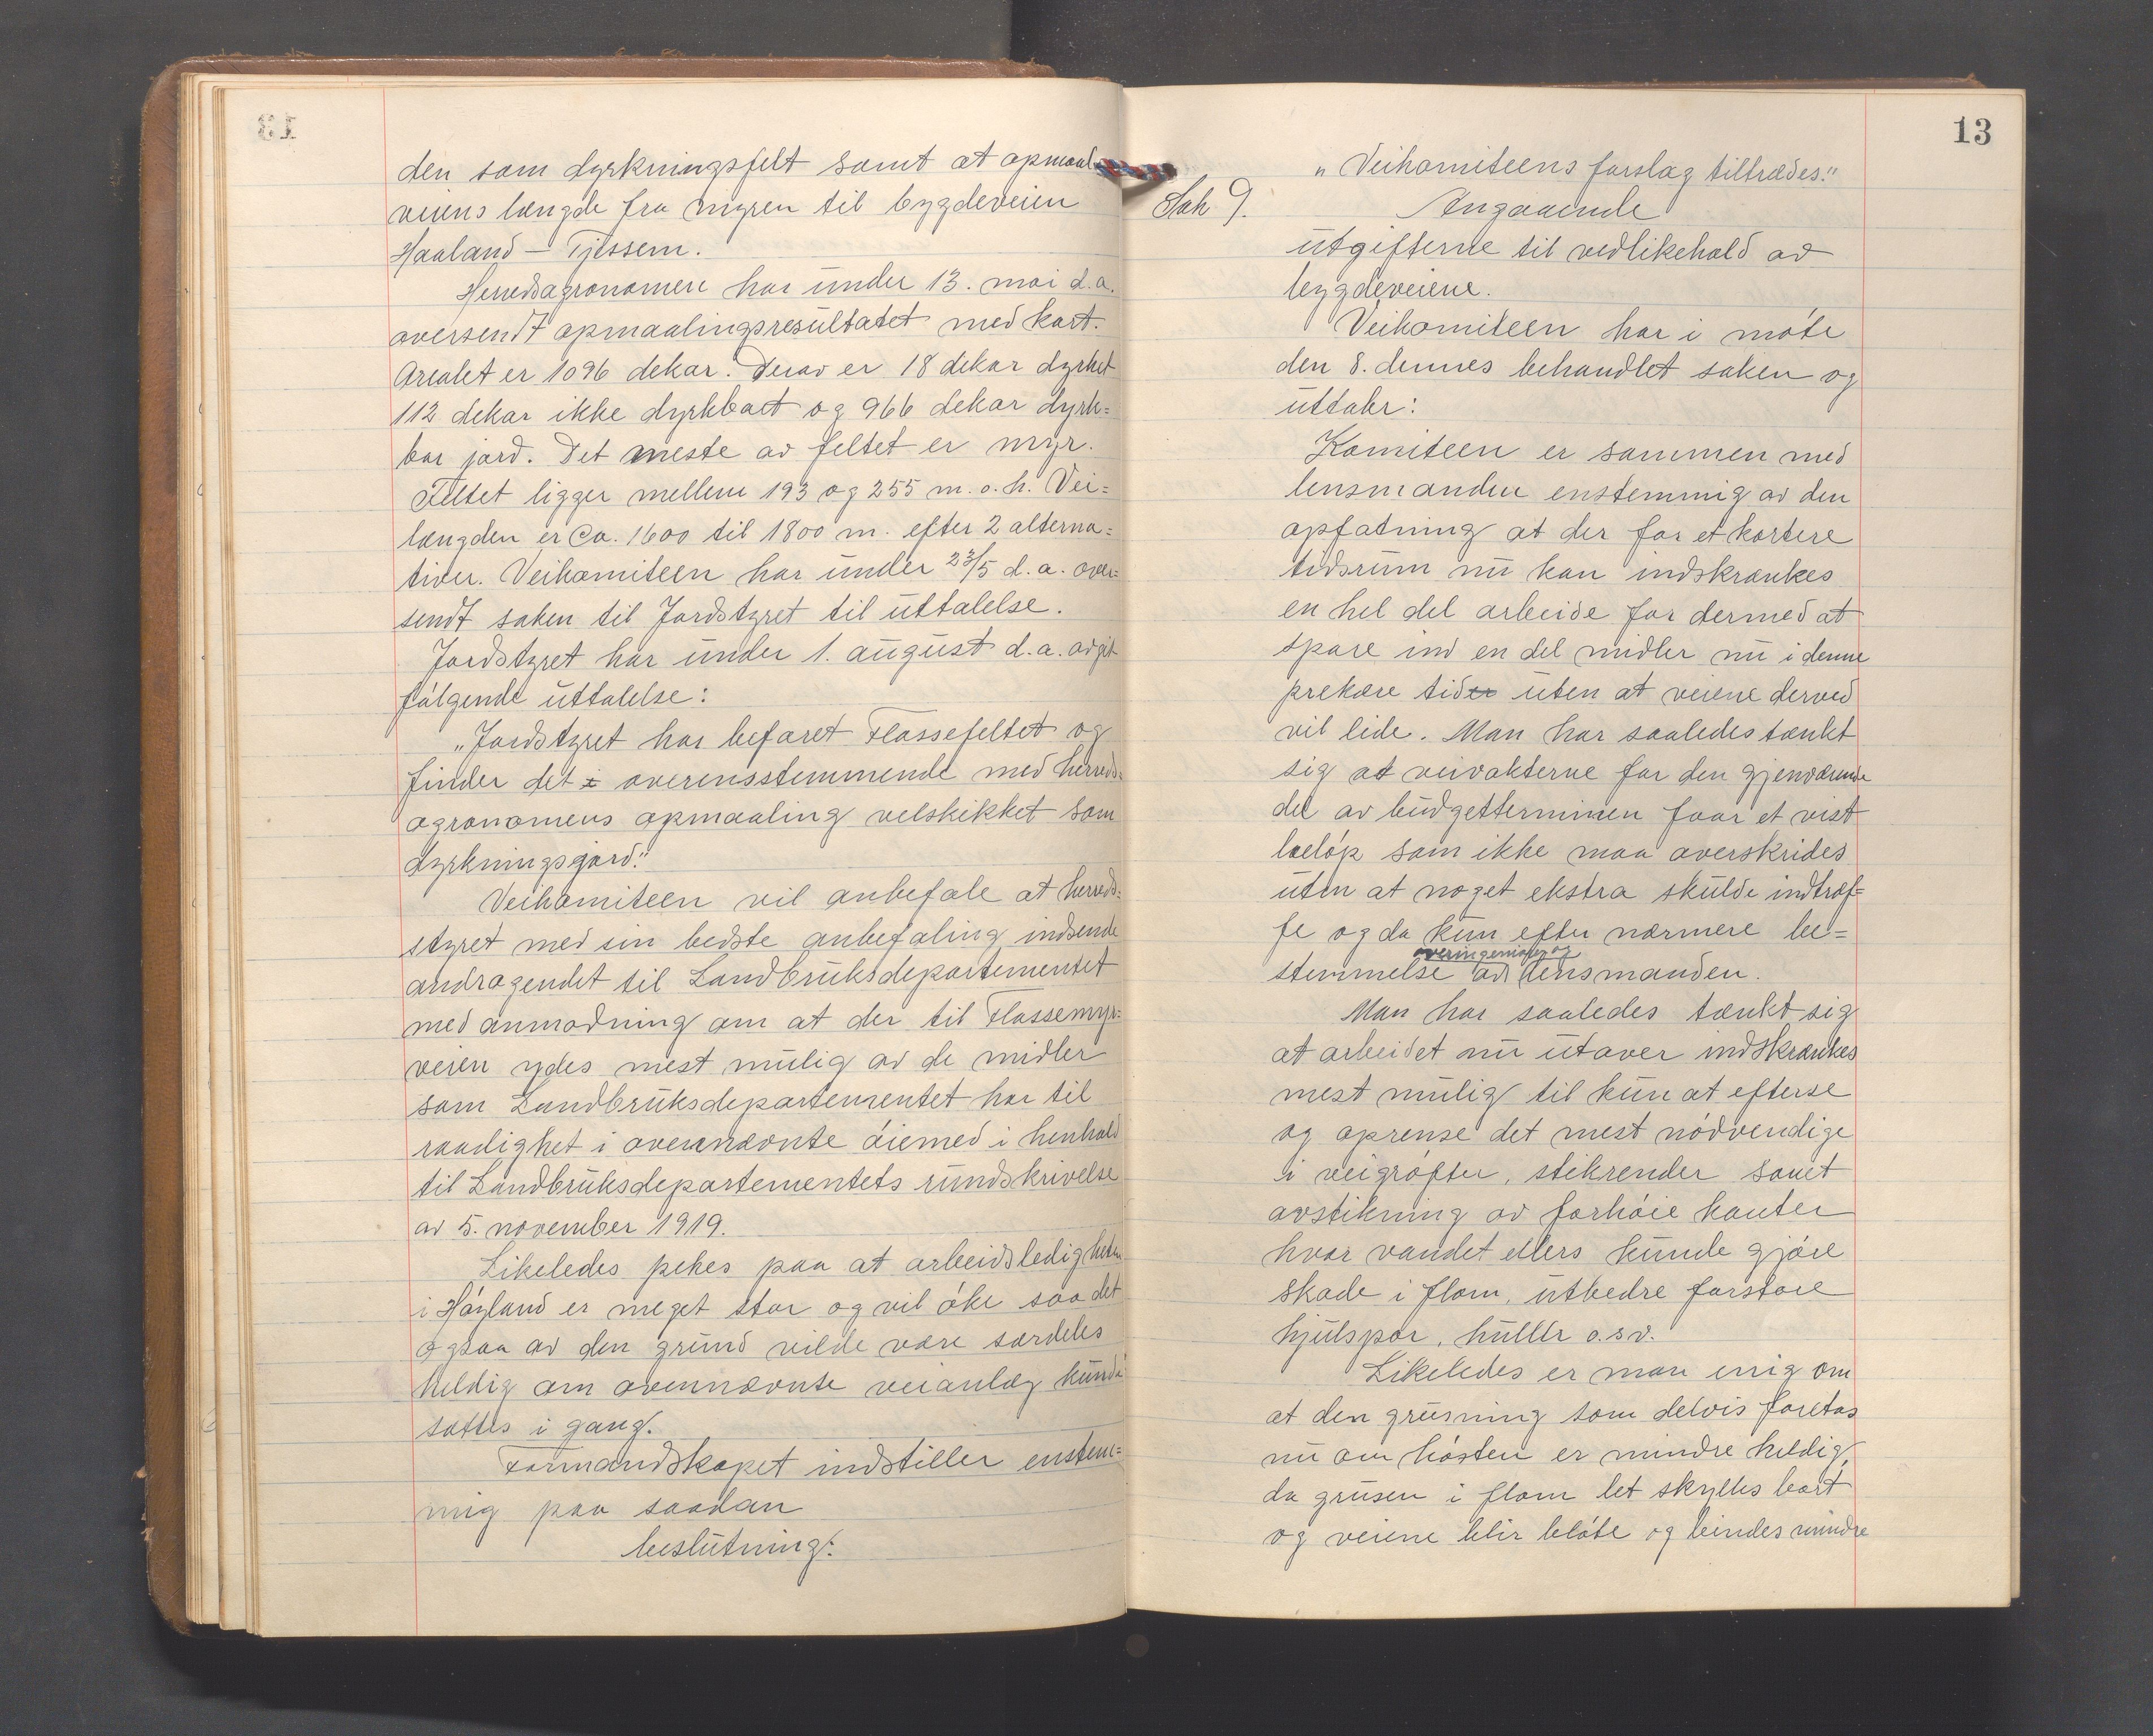 den som dyrkningsfelt samt at opmaale
veiens længde fra myren til bygdeveien
Haaland – Tjessem.
Herredsagronomen har under 13. mai d.a.
oversendt opmaalingsresultatet med kart.
Arealet er 1096 dekar. Derav er 18 dekar dyrket
112 dekar ikke dyrkbart og 966 dekar dyrk=
bar jord. Det meste av feltet er myr.
Feltet ligger mellem 193 og 255 m.o.h. Vei=
længden er Ca. 1600 til 1800 m. efter 2 alterna=
tiver. Veikomiteen har under 23/5 d.a. over=
sendt saken til Jordstyret til uttalelse.
Jordstyret har under 1. august d.a. avgit
følgende uttalelse:
„Jordstyret har befaret Flassefeltet og
finder det i overensstemmende med herreds=
agronomens opmaaling velskikket som
dyrkningsjord."
Veikomiteen vil anbefale at herreds=
styret med sin bedste anbefaling indsende
andragendet til Landbruksdepartementet
med anmodning om at der til Flassemyr=
veien ydes mest mulig av de midler
som Landbruksdepartementet har til
raadighet i ovennævnte øiemed i henhold
til Landbruksdepartementets rundskrivelse
av 5. november 1919.
Likeledes pekes paa at arbeidsledigheten
i Høyland er meget stor og vil øke saa det
ogsaa av den grund vilde være særdeles
heldig om ovennævnte veianlæg kunde
sættes i gang.
Formandskapet indstiller enstem=
mig paa saadan
beslutning:
13
„Veikomiteens forslag tiltrædes."
Sak 9. Angaaende
utgifterne til vedlikehold av
bygdeveiene.
Veikomiteen har i møte
den 8. dennes behandlet saken og
uttaler:
Komiteen er sammen med
lensmanden enstemmig av den
opfatning at der for et kortere
tidsrum nu kan indskrænkes
en hel del arbeide for dermed at
spare ind en del midler nu i denne
prekære tider uten at veiene derved
vil lide. Man har saaledes tænkt
sig at veivakterne for den gjenværende
del av budgetterminen faar et vist
beløp som ikke maa overskrides
uten at noget ekstra skulde indtræf=
fe og da kun efter nærmere be=
overingeniør og
stemmelse av lensmanden.
Man har saaledes tænkt sig
at arbeidet nu utover indskrænkes
mest mulig til kun at efterse
og oprense det mest nødvendige
i veigrøfter, stikrender samt
avstikning av forhøie kanter
hvor vandet ellers kunde gjøre
skade i flom, utbedre forstore
hjulspor, huller o.s.v.
Likeledes er man enig om
at den grusning som delvis foretas
nu om høsten er mindre heldig,
da grusen i flom let skylles bort
og veiene blir bløte og bindes mindre